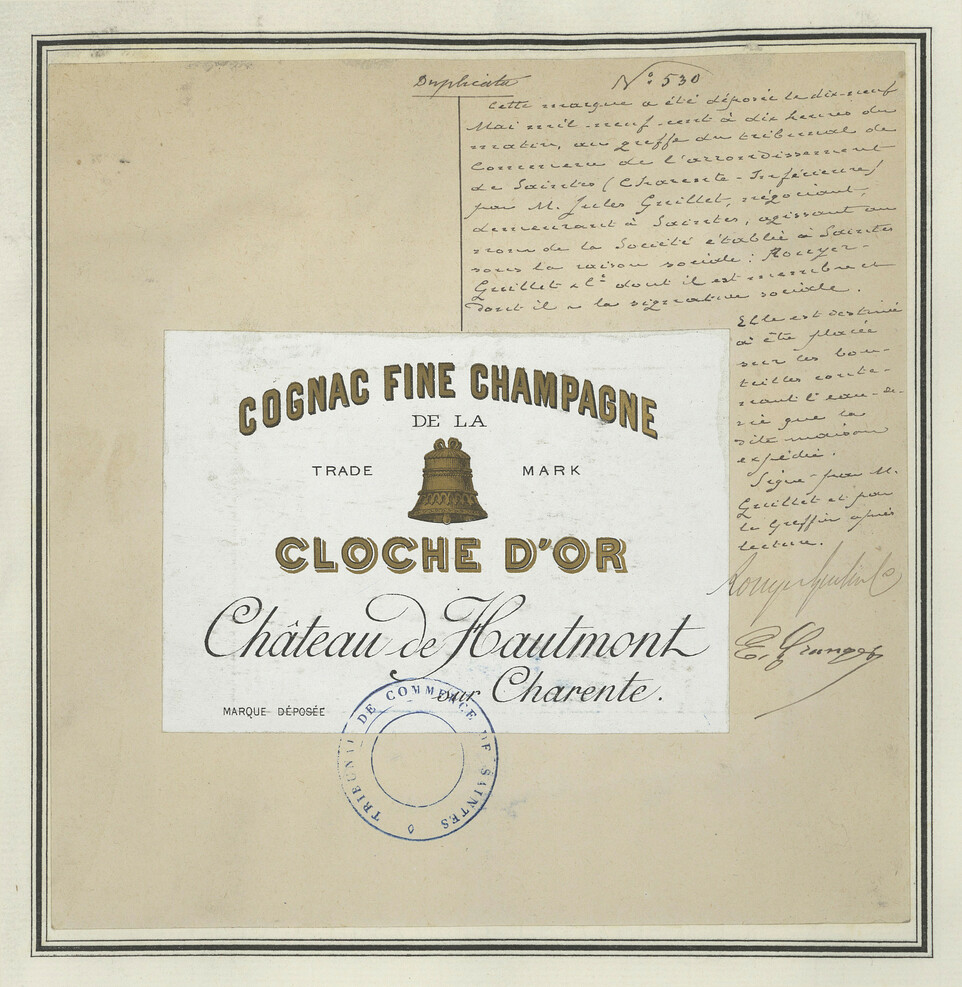 Duplicata
N° 530
Cette marque a été déposée le dix-neuf
Mai mil-neuf-cent à dix heures du
matin, au greffe du tribunal de
Commerce de l'arrondissement
de Saintes (Charente-Inférieure)
par M. Jules Guillet, négociant,
demeurant à Saintes, agissant au
nom de la Société établie à Saintes
sous la raison sociale : Rouyer-
Guillet & Cie dont il est membre et
dont il a la signature sociale.
Elle est destinée
à être placée
sur les bou-
teilles conte-
nant l'eau-de-
vie que la
dite maison
expédie.
Signé par M.
Guillet et par
le Greffier après
lecture.
Rouyer Guillet & Co
E. Granger
COGNAC FINE CHAMPAGNE
DE LA
TRADE MARK
CLOCHE D'OR
Château de Hautmont
sur Charente.
MARQUE DÉPOSÉE
TRIBUNAL DE COMMERCE DE SAINTES